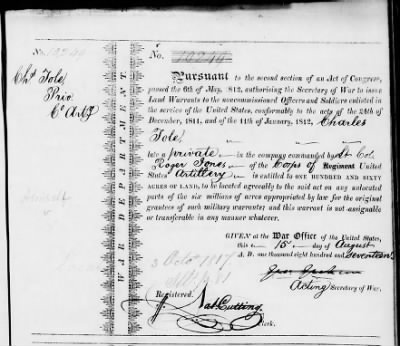 No.
Chs. Tole,
Priv.
Cs. Arty
WAR DEPARTMENT.
No.
Pursuant to the second section of an Act of Congress,
passed the 6th of May, 1812, authorising the Secretary of War to issue
Land Warrants to the noncommissioned Officers and Soldiers enlisted in
the service of the United States, conformably to the acts of the 24th of
December, 1811, and of the 11th of January, 1812, Charles
Tole,
late a private in the company commanded by Lt Col.
Roger Jones of the Corps of Regiment United
States' Artillery is entitled to ONE HUNDRED AND SIXTY
ACRES OF LAND, to be located agreeably to the said act on any unlocated
part of the six millions of acres appropriated by law for the original
grantees of such military warrants; and this warrant is not assignable
or transferable in any manner whatever.
GIVEN at the War Office of the United States,
this 15 day of August
A. D. one thousand eight hundred and Seventeen
Geo: Graham
Acting Secretary of War.
Registered.
Nat Cutting
Clerk.